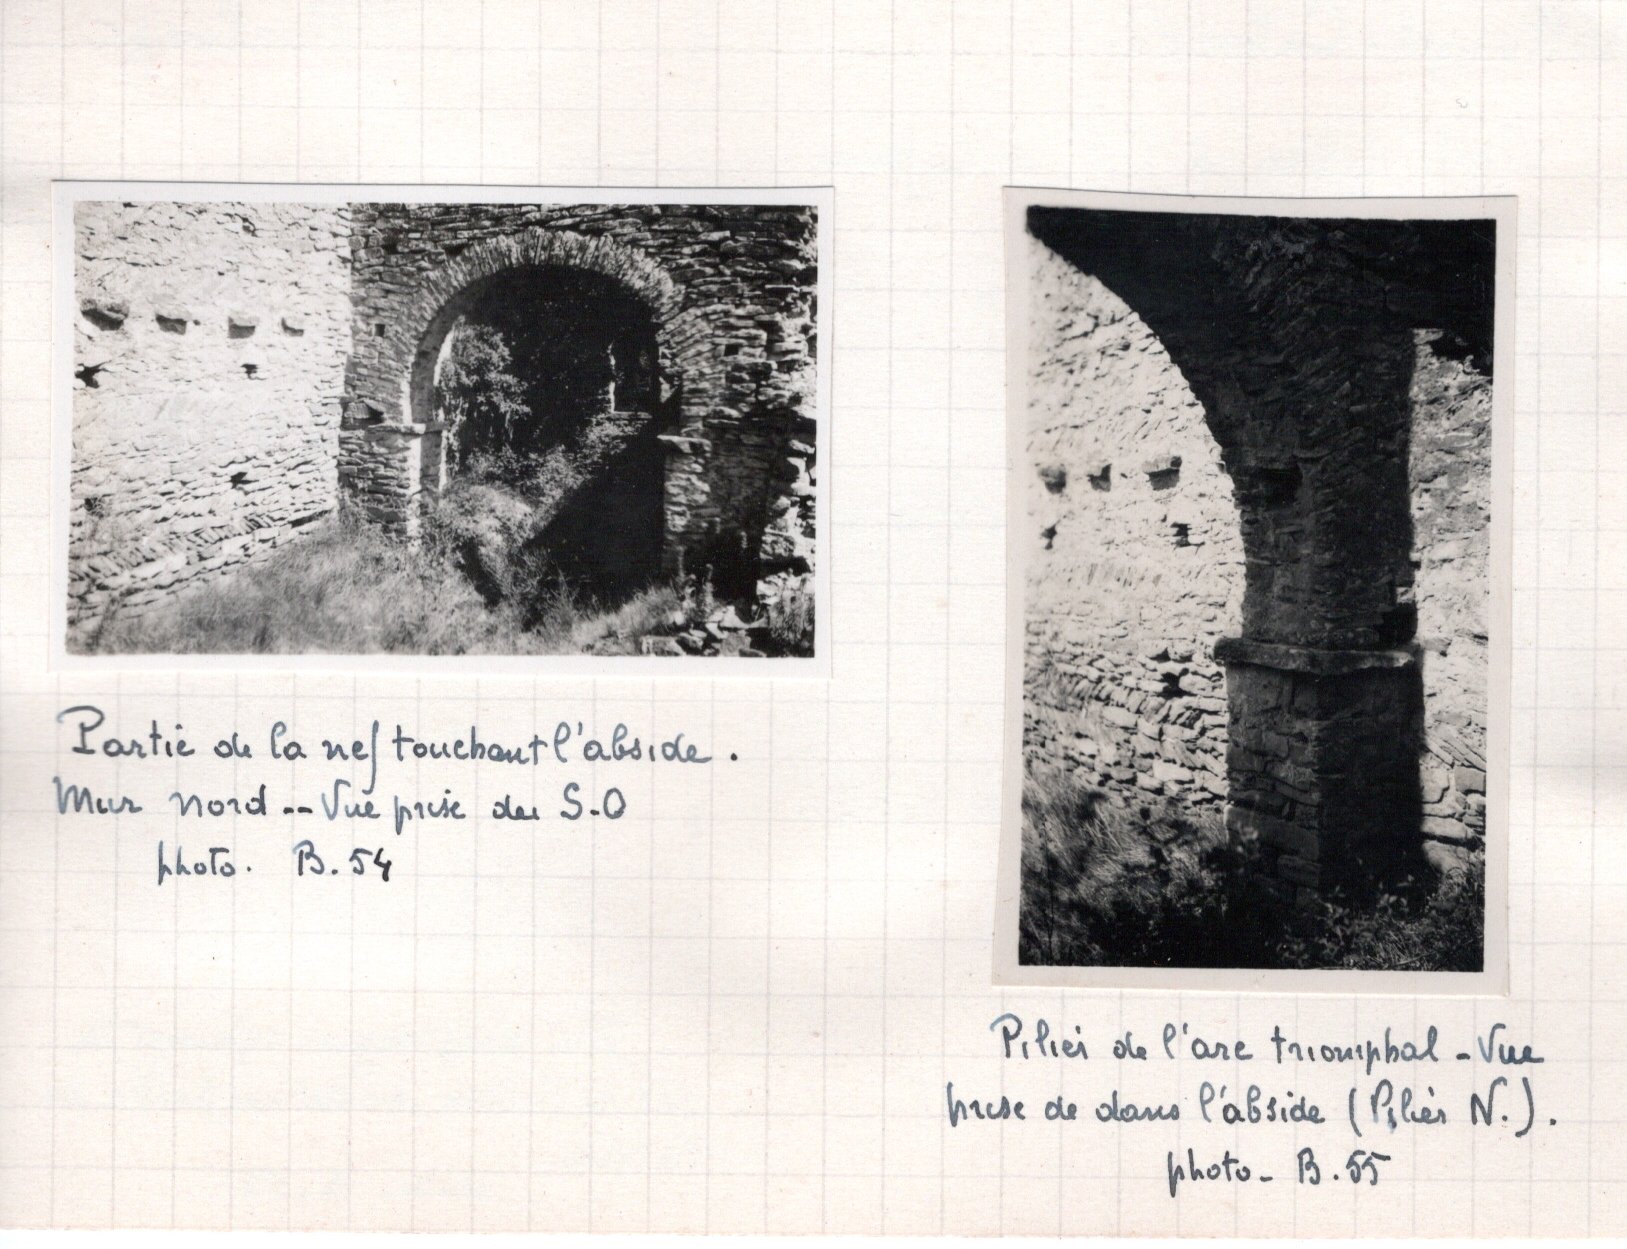 Partie de la nef touchant l'abside.
Mur nord -- Vue prise du S-O
photo. B.54
Pilier de l'arc triomphal - Vue
prise de dans l'abside (Pilier N.).
photo - B.55